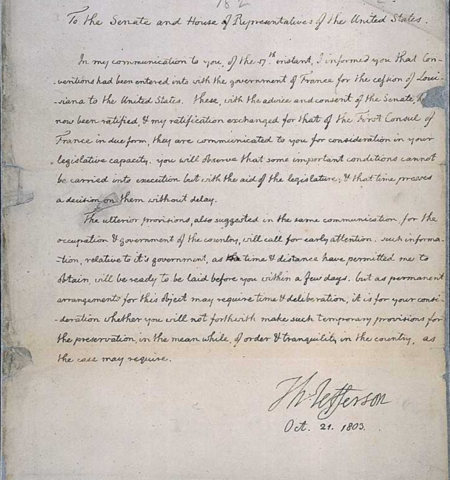 To the Senate and House of Representatives of the United States.
In my communication to you, of the 17th instant, I informed you that Con-
-ventions had been entered into with the government of France for the cession of Loui-
-siana to the United States. these, with the advice and consent of the Senate,
now been ratified, & my ratification exchanged for that of the First Consul of
France in due form, they are communicated to you for consideration in your
legislative capacity. you will observe that some important conditions cannot
be carried into execution but with the aid of the legislature; & that time presses
a decision on them without delay.
The ulterior provisions, also suggested in the same communication, for the
occupation & government of the country, will call for early attention. such informa-
-tion, relative to it's government, as time & distance have permitted me to
obtain will be ready to be laid before you within a few days. but as permanent
arrangements for this object may require time & deliberation, it is for your consi-
-deration whether you will not forthwith make such temporary provisions for
the preservation, in the mean while, of order & tranquility in the country, as
the case may require.
Th: Jefferson
Oct. 21. 1803.